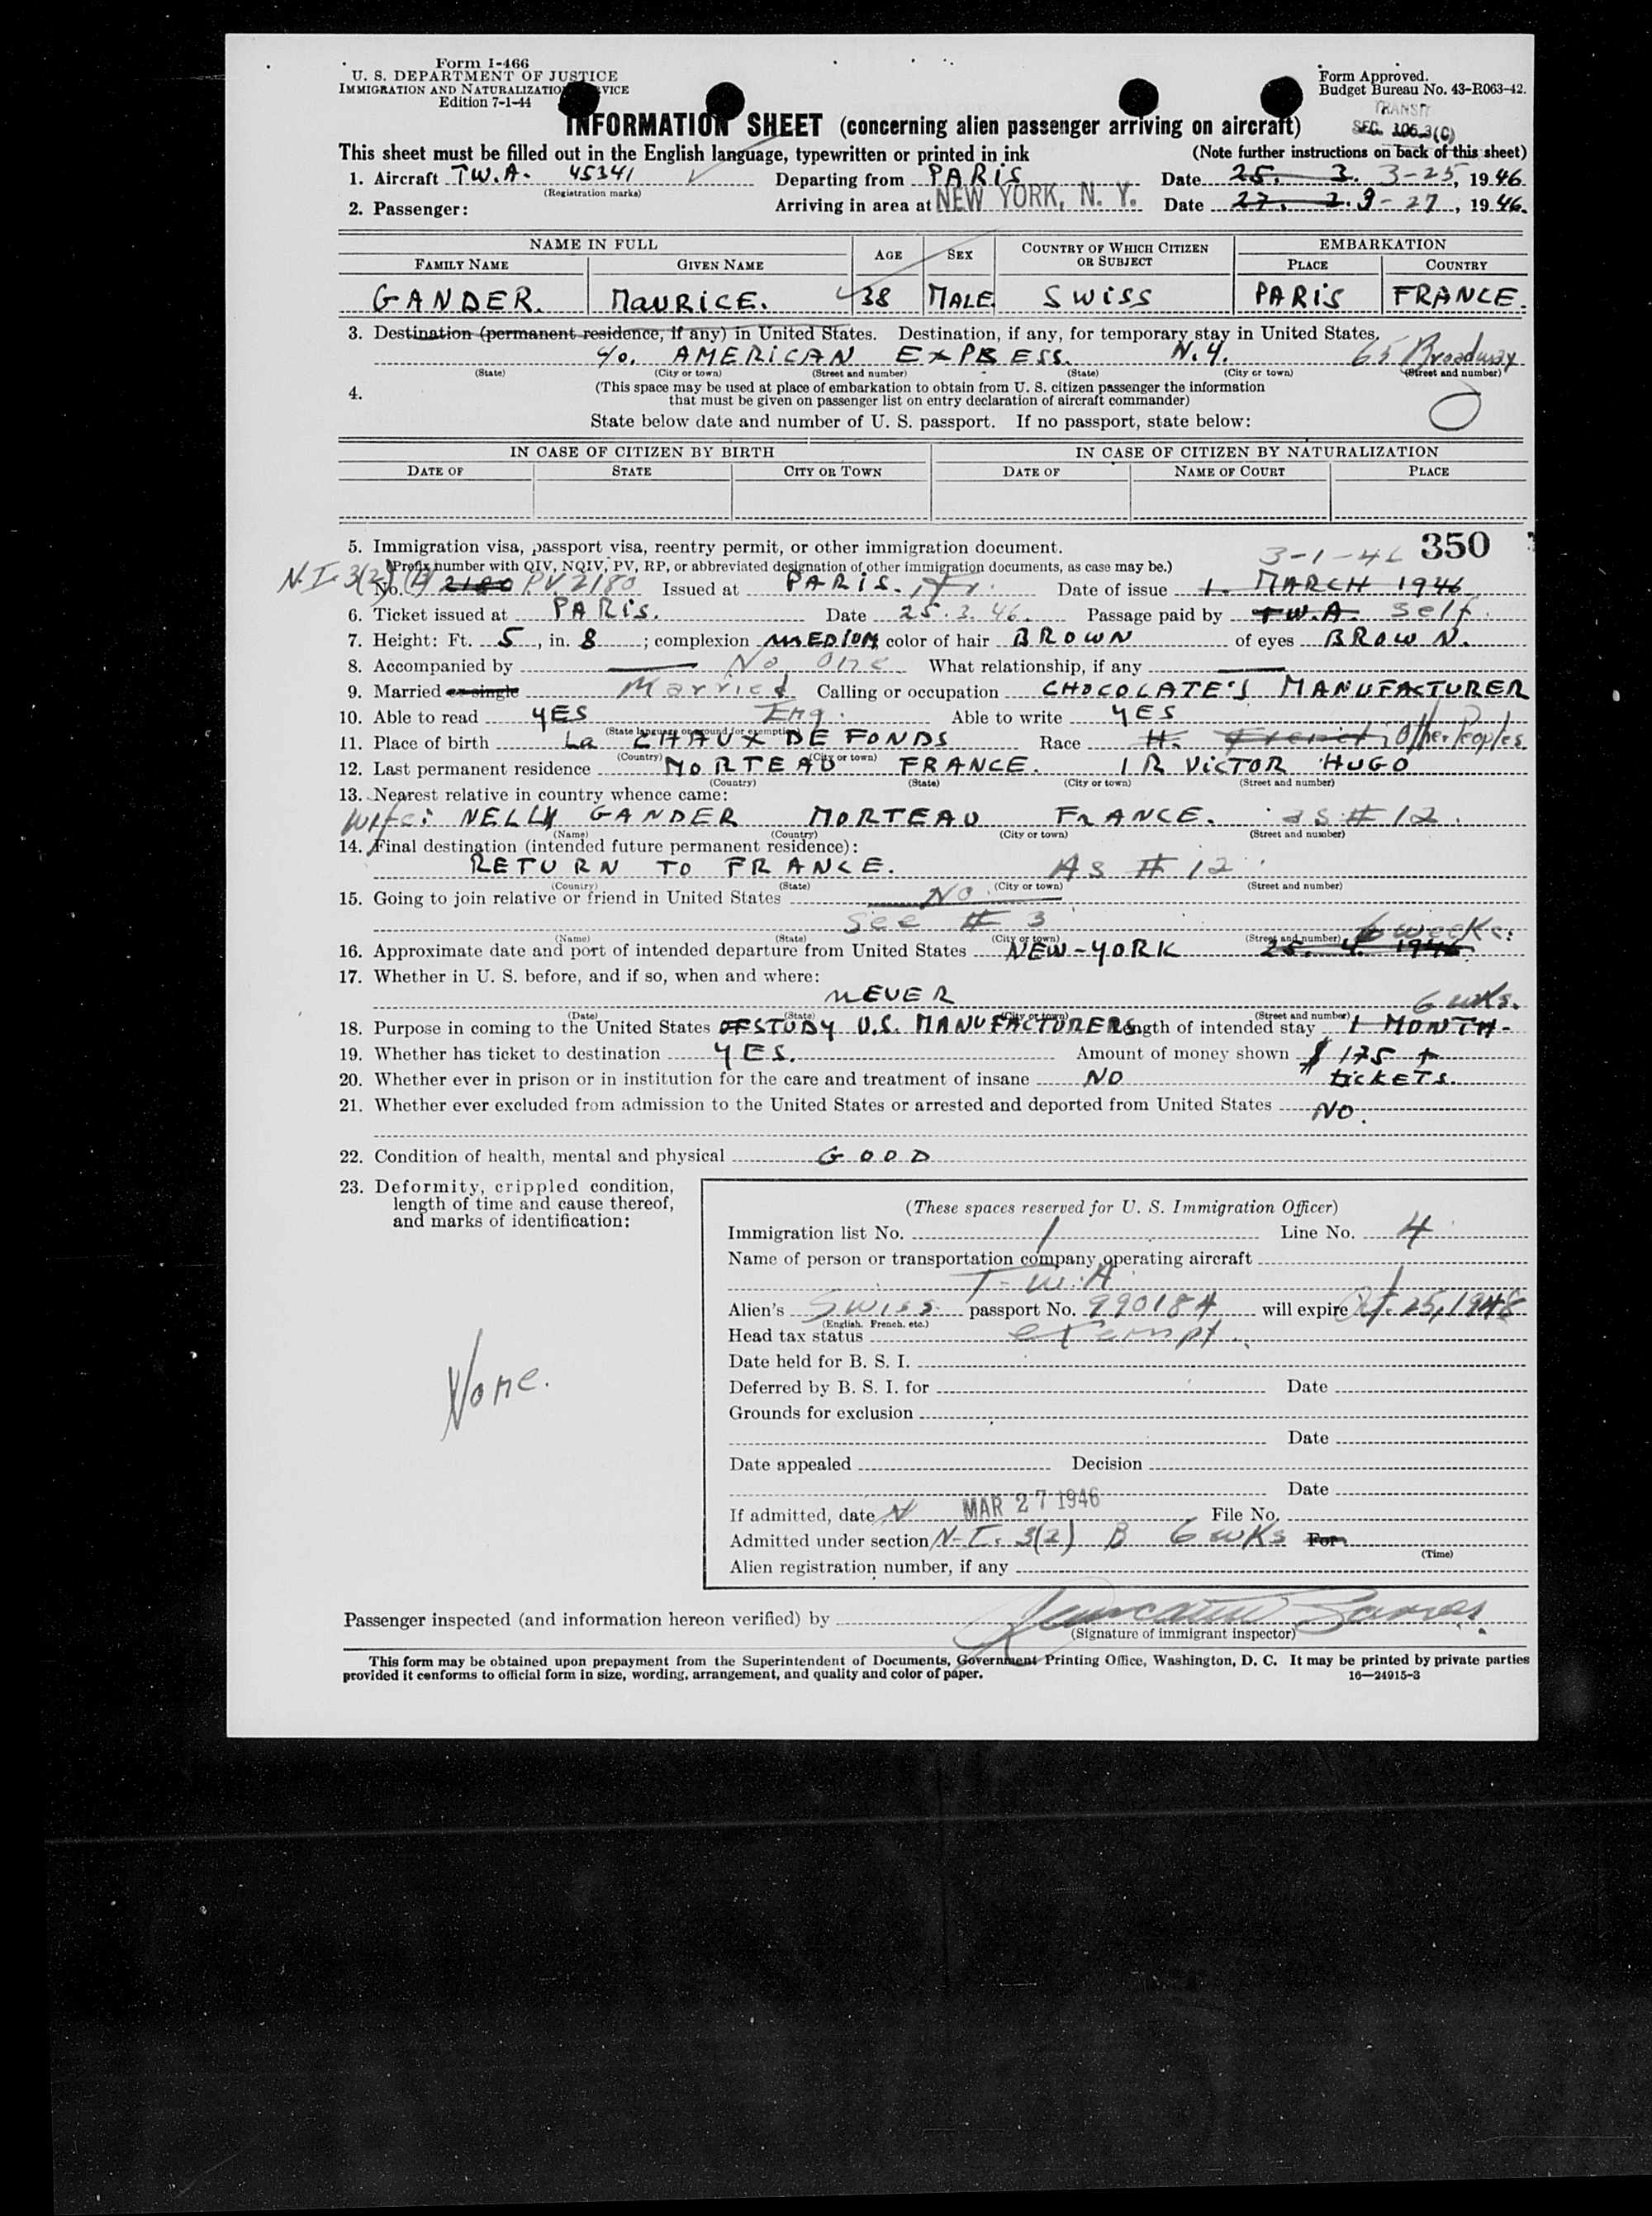 Form I-466
U. S. DEPARTMENT OF JUSTICE
IMMIGRATION AND NATURALIZATION SERVICE
Edition 7-1-44
Form Approved.
Budget Bureau No. 43-R063-42.
TRANSIT
SEC. 106.3(C)
INFORMATION SHEET (concerning alien passenger arriving on aircraft)
This sheet must be filled out in the English language, typewritten or printed in ink (Note further instructions on back of this sheet)
1. Aircraft T.W.A. 45341 Departing from PARIS Date 25. 3. 3-25, 1946
(Registration marks)
2. Passenger: Arriving in area at NEW YORK, N. Y. Date 27. 3-27, 1946.
NAME IN FULL AGE SEX COUNTRY OF WHICH CITIZEN OR SUBJECT EMBARKATION
FAMILY NAME GIVEN NAME PLACE COUNTRY
GANDER. MAURICE. 38 MALE. SWISS PARIS FRANCE.
3. Destination (permanent residence, if any) in United States. Destination, if any, for temporary stay in United States.
c/o. AMERICAN EXPRESS. N.Y. 65 Broadway
(State) (City or town) (Street and number) (State) (City or town) (Street and number)
4. (This space may be used at place of embarkation to obtain from U. S. citizen passenger the information
that must be given on passenger list on entry declaration of aircraft commander)
State below date and number of U. S. passport. If no passport, state below:
IN CASE OF CITIZEN BY BIRTH IN CASE OF CITIZEN BY NATURALIZATION
DATE OF STATE CITY OR TOWN DATE OF NAME OF COURT PLACE
5. Immigration visa, passport visa, reentry permit, or other immigration document. 3-1-46 350
(Prefix number with QIV, NQIV, PV, RP, or abbreviated designation of other immigration documents, as case may be.)
N.I. 3(2)(B) No. 2180 P.V. 2180 Issued at PARIS. Fr. Date of issue 1. MARCH 1946
6. Ticket issued at PARIS. Date 25.3.46. Passage paid by T.W.A. Self.
7. Height: Ft. 5, in. 8; complexion MEDIUM color of hair BROWN of eyes BROWN.
8. Accompanied by No One What relationship, if any
9. Married or single Married Calling or occupation CHOCOLATE'S MANUFACTURER
10. Able to read YES Eng. Able to write YES
(State language or ground for exemption)
11. Place of birth La CHAUX DE FONDS Race H. French; Other Peoples
(Country) (City or town)
12. Last permanent residence MORTEAU FRANCE. 1 R VICTOR HUGO
(Country) (State) (City or town) (Street and number)
13. Nearest relative in country whence came:
Wife: NELLY GANDER MORTEAU FRANCE. as # 12.
(Name) (Country) (City or town) (Street and number)
14. Final destination (intended future permanent residence):
RETURN TO FRANCE. As # 12.
(Country) (State) (City or town) (Street and number)
15. Going to join relative or friend in United States No.
See # 3
(Name) (State) (City or town) (Street and number) 6 weeks:
16. Approximate date and port of intended departure from United States NEW-YORK 25. 4. 1946.
17. Whether in U. S. before, and if so, when and where:
NEVER 6 wks.
(Date) (State) (City or town) (Street and number)
18. Purpose in coming to the United States STUDY U.S. MANUFACTURERS Length of intended stay 1 MONTH-
19. Whether has ticket to destination YES. Amount of money shown $ 175 +
20. Whether ever in prison or in institution for the care and treatment of insane NO TICKETS.
21. Whether ever excluded from admission to the United States or arrested and deported from United States NO.
22. Condition of health, mental and physical GOOD
23. Deformity, crippled condition,
length of time and cause thereof,
and marks of identification:
None.
(These spaces reserved for U. S. Immigration Officer)
Immigration list No. 1 Line No. 4
Name of person or transportation company operating aircraft
T.W.A
Alien's Swiss passport No. 990184 will expire Oct. 25, 1948
(English, French, etc.)
Head tax status exempt.
Date held for B. S. I.
Deferred by B. S. I. for Date
Grounds for exclusion
Date
Date appealed Decision
Date
If admitted, date MAR 27 1946 File No.
Admitted under section N.I. 3(2) B 6 wks For
(Time)
Alien registration number, if any
Passenger inspected (and information hereon verified) by
(Signature of immigrant inspector)
This form may be obtained upon prepayment from the Superintendent of Documents, Government Printing Office, Washington, D. C. It may be printed by private parties
provided it conforms to official form in size, wording, arrangement, and quality and color of paper. 16—24915-3